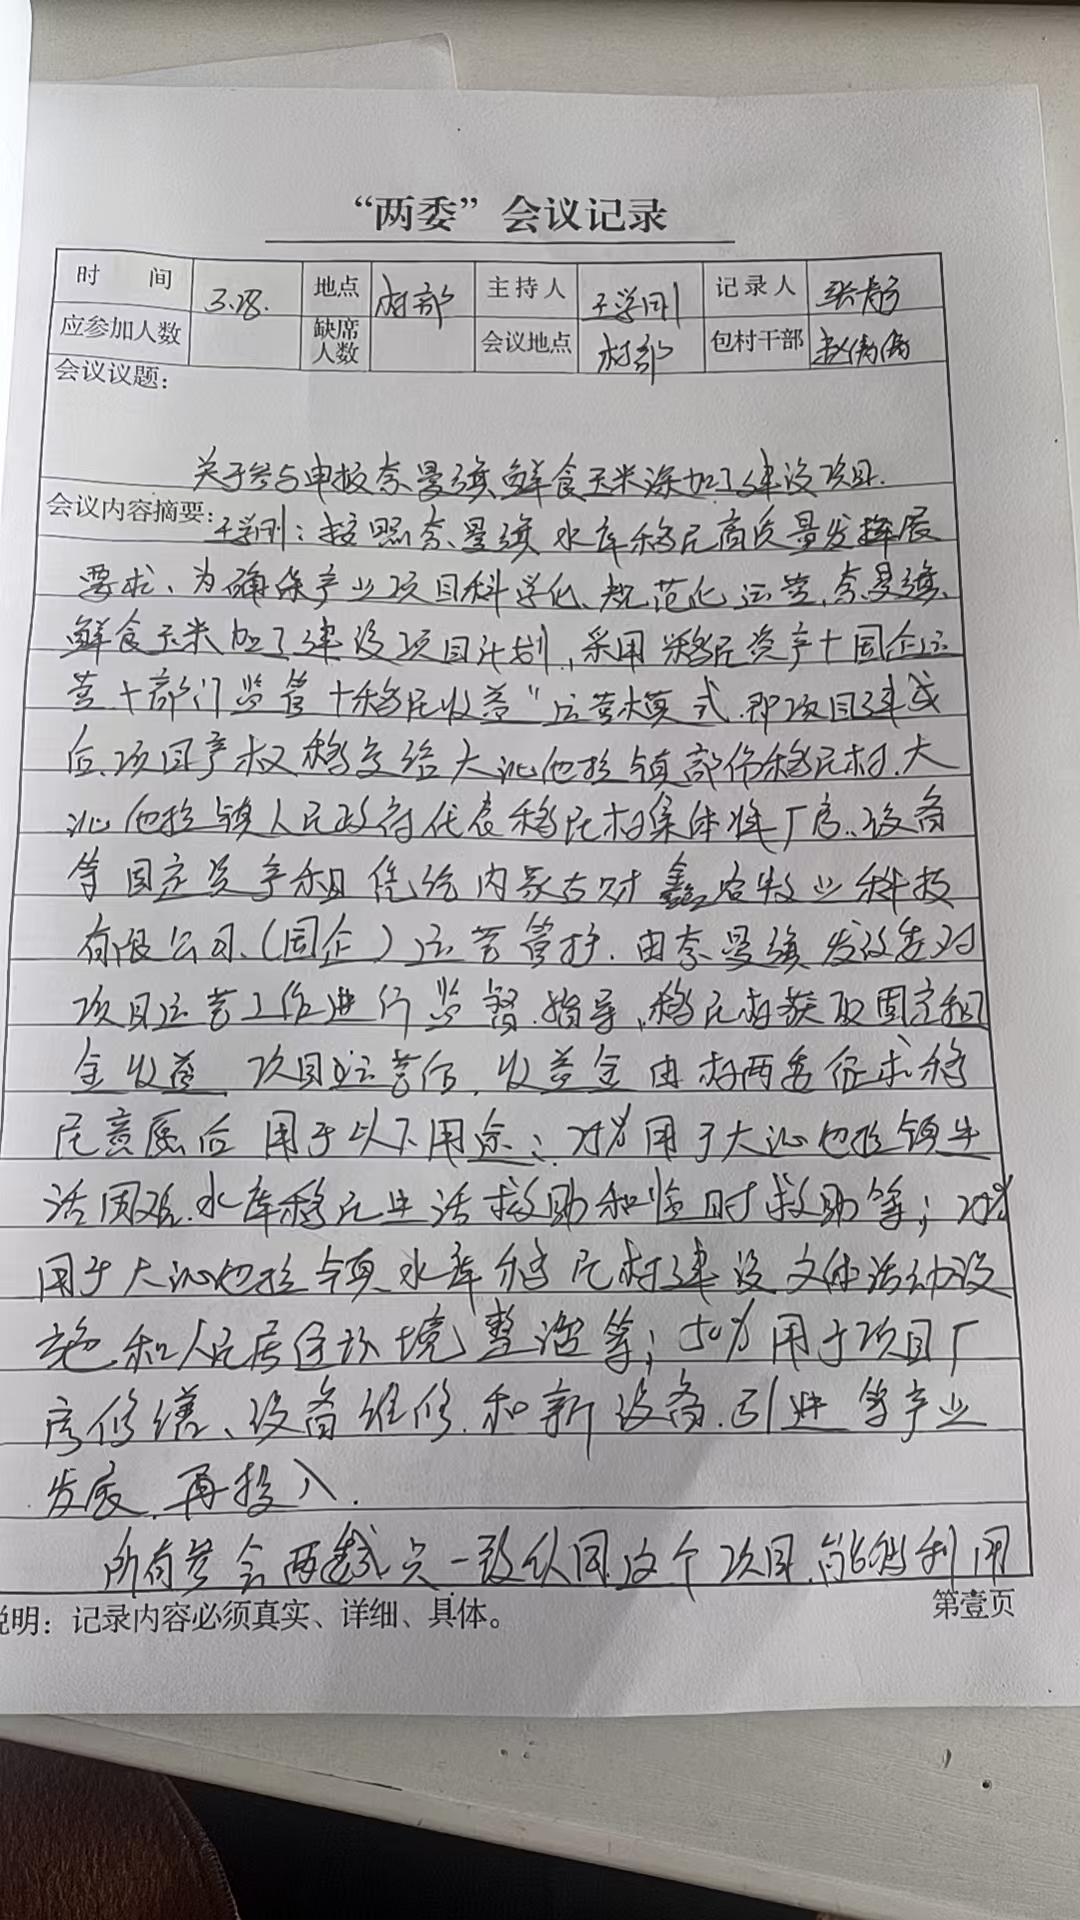 “两委”会议记录
时 间 3.28. 地点 村部 主持人 王学刚 记录人 张静
应参加人数 缺席人数 会议地点 村部 包村干部 赵倩倩
会议议题：
关于参与申报奈曼旗鲜食玉米深加工建设项目.
会议内容摘要：王学刚：按照奈曼旗水库移民高质量发挥展
要求、为确保产业项目科学化、规范化运营,奈曼旗
鲜食玉米加工建设项目计划,采用“移民资产十国企运
营十部门监管十移民收益”运营模式.即项目建成
后.项目产权移交给大沁他拉镇部份移民村.大
沁他拉镇人民政府代表移民村集体将厂房、设备
等固定资产租凭给内蒙古 鑫 牧业科技
有限公司、(国企)运营管护.由奈曼旗发改委对
项目运营工作进行监督.指导,移民村获取固定租
金收益.项目运营后,收益金由村两委征求移
民意愿后用于以下用途：25%用于大沁他拉镇生
活困难.水库移民生活救助和临时救助等；25%
用于大沁他拉镇水库移民村建设文体活动设
施和人民居住环境整治等；50%用于项目厂
房修缮、设备维修.和新设备.引进等产业
发展.再投入.
所有参会两委成员一致认同这个项目.能够利用
说明：记录内容必须真实、详细、具体。 第壹页